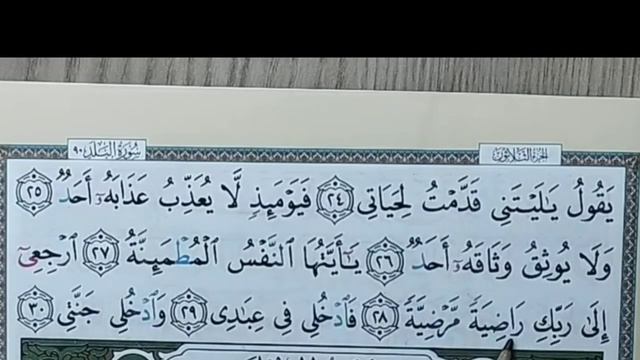 الجزء الثلاثون
سورة البلد ٩٠
يَقُولُ يَٰلَيۡتَنِي قَدَّمۡتُ لِحَيَاتِي ٢٤ فَيَوۡمَئِذٖ لَّا يُعَذِّبُ عَذَابَهُۥٓ أَحَدٞ ٢٥
وَلَا يُوثِقُ وَثَاقَهُۥٓ أَحَدٞ ٢٦ يَٰٓأَيَّتُهَا ٱلنَّفۡسُ ٱلۡمُطۡمَئِنَّةُ ٢٧ ٱرۡجِعِيٓ
إِلَىٰ رَبِّكِ رَاضِيَةٗ مَّرۡضِيَّةٗ ٢٨ فَٱدۡخُلِي فِي عِبَٰدِي ٢٩ وَٱدۡخُلِي جَنَّتِي ٣٠